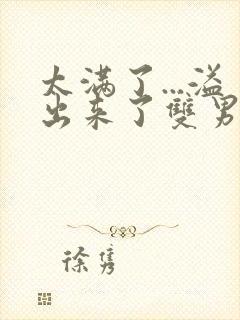 太满了...溢
出来了雙男
徐隽